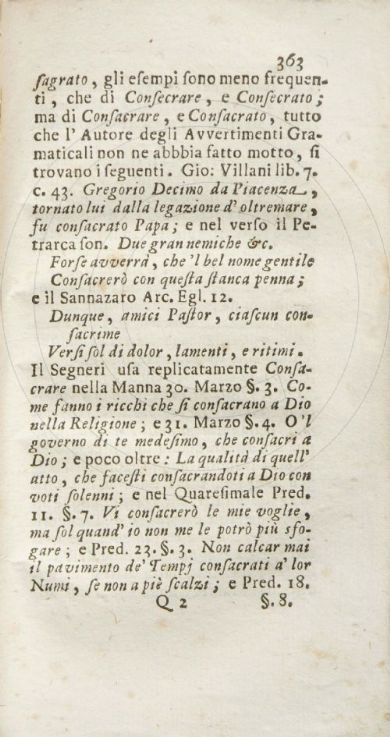 363
ſagrato, gli eſempi ſono meno frequen-
ti, che di Conſecrare, e Conſecrato;
ma di Conſacrare, e Conſacrato, tutto
che l' Autore degli Avvertimenti Gra-
maticali non ne abbbia fatto motto, ſi
trovano i ſeguenti. Gio: Villani lib. 7.
c. 43. Gregorio Decimo da Piacenza,
tornato lui dalla legazione d' oltremare,
fu conſacrato Papa; e nel verſo il Pe-
trarca ſon. Due gran nemiche &c.
Forſe avverrà, che 'l bel nome gentile
Conſacrerò con queſta ſtanca penna;
e il Sannazaro Arc. Egl. 12.
Dunque, amici Paſtor, ciaſcun con-
ſacrime
Verſi ſol di dolor, lamenti, e ritimi.
Il Segneri uſa replicatamente Conſa-
crare nella Manna 30. Marzo §. 3. Co-
me fanno i ricchi che ſi conſacrano a Dio
nella Religione; e 31. Marzo §. 4. O 'l
governo di te medeſimo, che conſacri a
Dio; e poco oltre: La qualità di quell'
atto, che faceſti conſacrandoti a Dio con
voti ſolenni; e nel Quareſimale Pred.
11. §. 7. Vi conſacrerò le mie voglie,
ma ſol quand' io non me le potrò più sfo-
gare; e Pred. 23. §. 3. Non calcar mai
il pavimento de' Tempj conſacrati a' lor
Numi, ſe non a piè ſcalzi; e Pred. 18.
Q 2 §. 8.